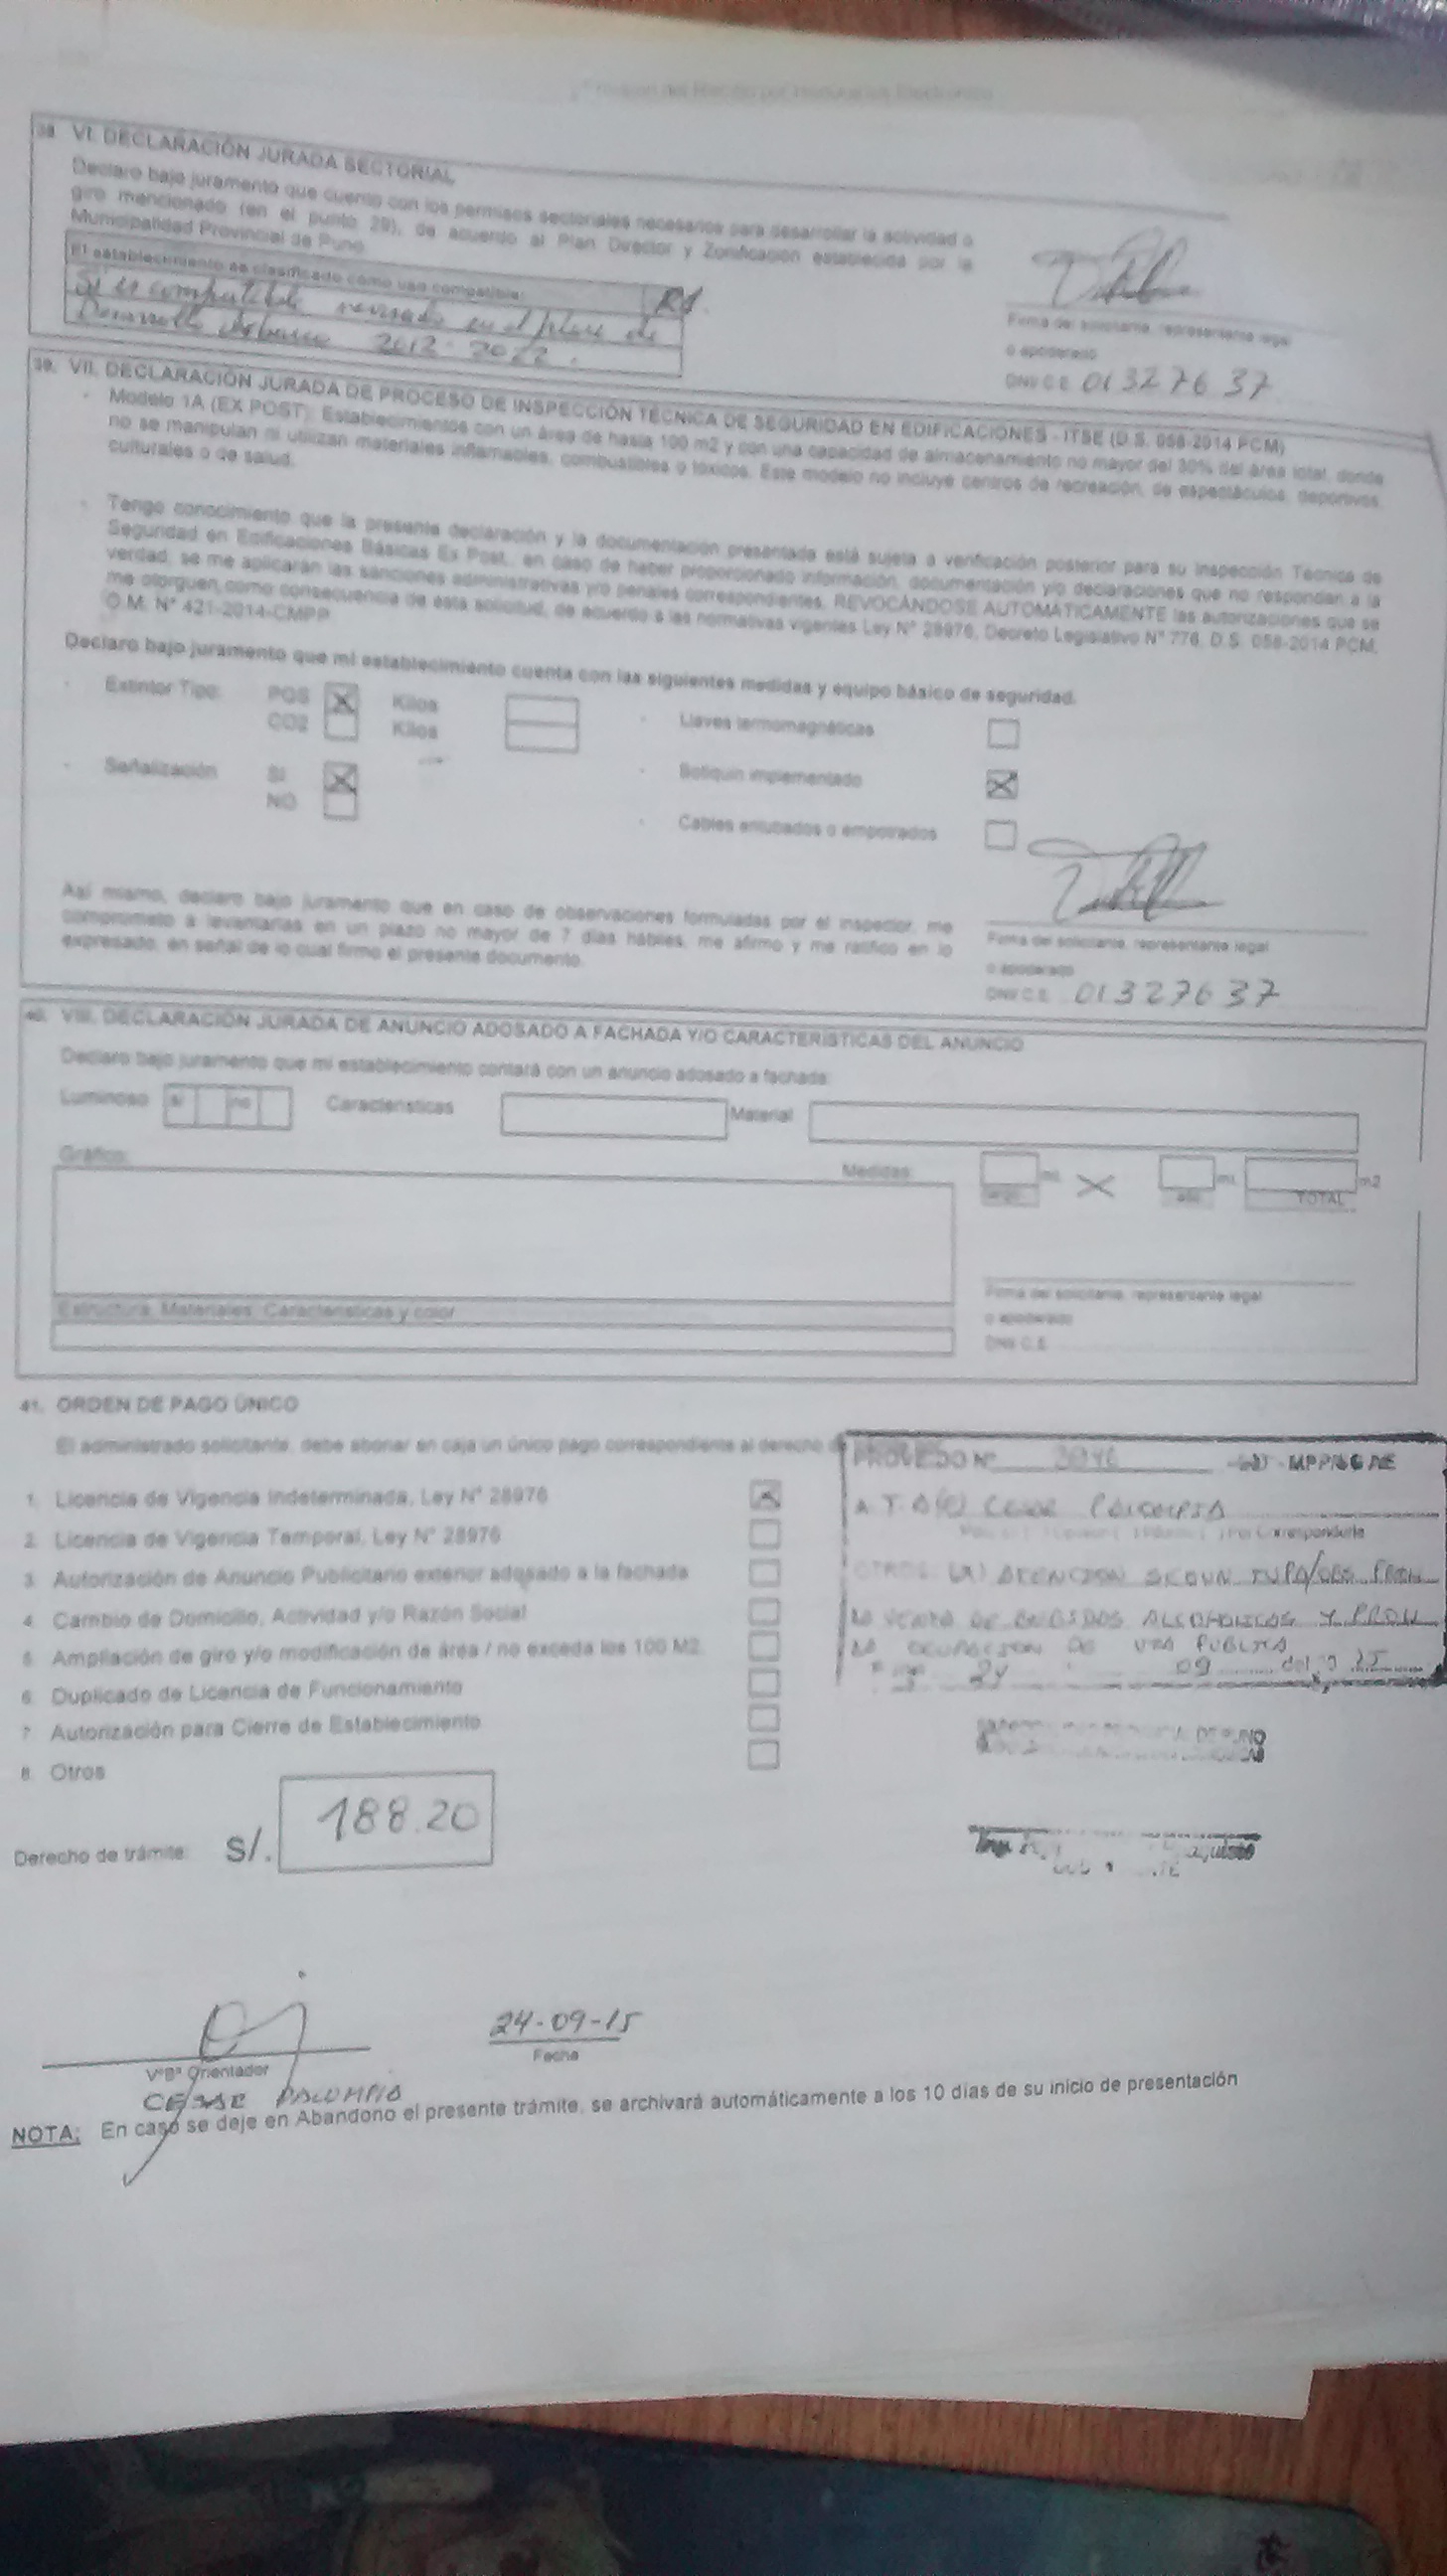 38. VI. DECLARACIÓN JURADA SECTORIAL
Declaro bajo juramento que cuento con los permisos sectoriales necesarios para desarrollar la actividad o
giro mencionado (en el punto 29), de acuerdo al Plan Director y Zonificación establecida por la
Municipalidad Provincial de Puno.
El establecimiento es clasificado como uso compatible:
Si es compatible revisado en el plan de
Desarrollo Urbano 2012-2022.
Firma del solicitante, representante legal
o apoderado
DNI/C.E. 01327637
39. VII. DECLARACIÓN JURADA DE PROCESO DE INSPECCIÓN TÉCNICA DE SEGURIDAD EN EDIFICACIONES - ITSE (D.S. 058-2014 PCM)
- Modelo 1A (EX POST): Establecimientos con un área de hasta 100 m2 y con una capacidad de almacenamiento no mayor del 30% del área total, donde
no se manipulan ni utilizan materiales inflamables, combustibles o tóxicos. Este modelo no incluye centros de recreación, de espectáculos, deportivos,
culturales o de salud.
- Tengo conocimiento que la presente declaración y la documentación presentada está sujeta a verificación posterior para su Inspección Técnica de
Seguridad en Edificaciones Básicas Ex Post., en caso de haber proporcionado información, documentación y/o declaraciones que no respondan a la
verdad, se me aplicarán las sanciones administrativas y/o penales correspondientes, REVOCÁNDOSE AUTOMÁTICAMENTE las autorizaciones que se
me otorguen como consecuencia de esta solicitud, de acuerdo a las normativas vigentes Ley N° 28976, Decreto Legislativo N° 776, D.S. 058-2014 PCM,
O.M. N° 421-2014-CMPP
Declaro bajo juramento que mi establecimiento cuenta con las siguientes medidas y equipo básico de seguridad.
- Extintor Tipo: PQS X Kilos - Llaves termomagnéticas
CO2 Kilos
- Señalización SI X - Botiquín implementado X
NO
- Cables entubados o empotrados
Así mismo, declaro bajo juramento que en caso de observaciones formuladas por el inspector, me
comprometo a levantarlas en un plazo no mayor de 7 días hábiles, me afirmo y me ratifico en lo
expresado, en señal de lo cual firmo el presente documento.
Firma del solicitante, representante legal
o apoderado
DNI/C.E. 01327637
40. VIII. DECLARACIÓN JURADA DE ANUNCIO ADOSADO A FACHADA Y/O CARACTERÍSTICAS DEL ANUNCIO
Declaro bajo juramento que mi establecimiento contará con un anuncio adosado a fachada:
Luminoso si no Características Material
Gráfico: Medidas: X m2
TOTAL
Estructura, Materiales, Características y color
Firma del solicitante, representante legal
o apoderado
DNI/C.E.
41. ORDEN DE PAGO ÚNICO
El administrado solicitante, debe abonar en caja un único pago correspondiente al derecho
1. Licencia de Vigencia Indeterminada, Ley N° 28976 X
2. Licencia de Vigencia Temporal, Ley N° 28976
3. Autorización de Anuncio Publicitario exterior adosado a la fachada
4. Cambio de Domicilio, Actividad y/o Razón Social
5. Ampliación de giro y/o modificación de área / no exceda los 100 M2.
6. Duplicado de Licencia de Funcionamiento
7. Autorización para Cierre de Establecimiento
8. Otros
PROVEIDO N°
OTROS: (X) ATENCION SEGUN TUPA/
VENTA DE BEBIDAS ALCOHOLICAS Y PROH
LA OCUPACION DE VIA PUBLICA
24 09 15
DE PUNO
Derecho de trámite: S/. 188.20
V°B° Orientador
24-09-15
Fecha
NOTA: En caso se deje en Abandono el presente trámite, se archivará automáticamente a los 10 días de su inicio de presentación